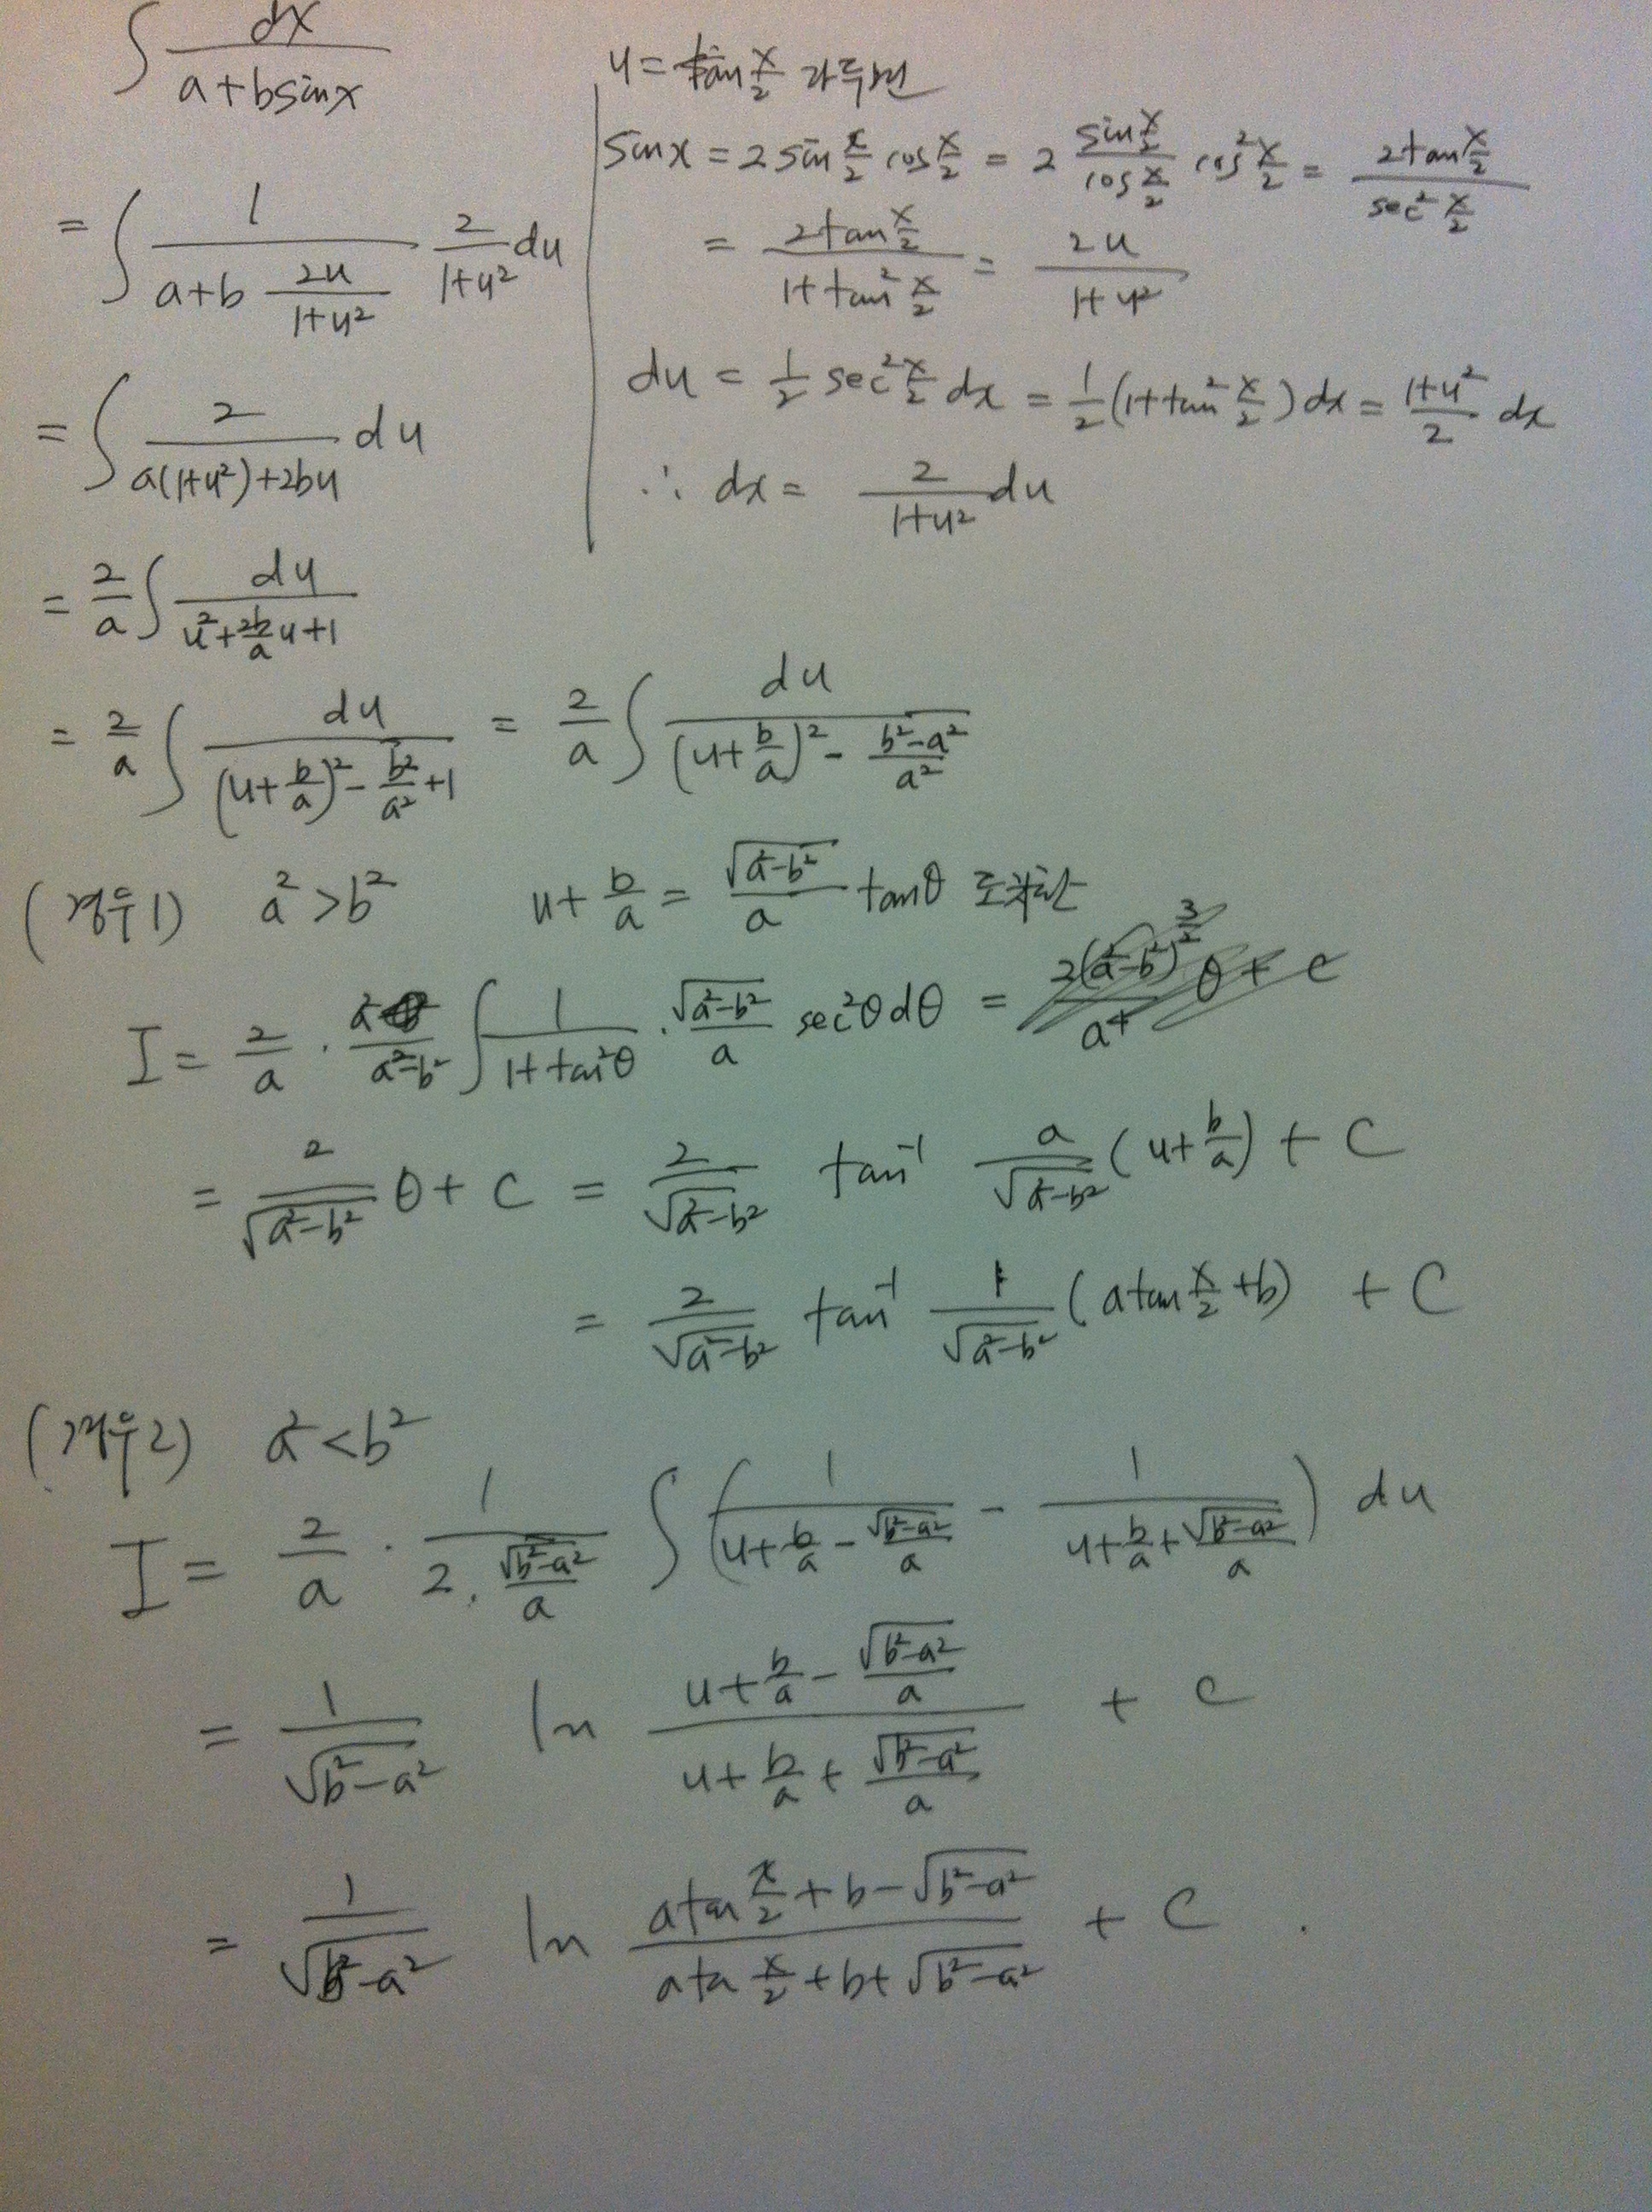 ∫ dx/(a+bsinx)
= ∫ 1/(a+b 2u/(1+u²)) 2/(1+u²) du
= ∫ 2/(a(1+u²)+2bu) du
= 2/a ∫ du/(u²+(2b/a)u+1)
u = tan x/2 라두면
sinx = 2 sin x/2 cos x/2 = 2 (sin x/2)/(cos x/2) cos² x/2 = (2tan x/2)/(sec² x/2)
= (2tan x/2)/(1+tan² x/2) = 2u/(1+u²)
du = 1/2 sec² x/2 dx = 1/2 (1+tan² x/2) dx = (1+u²)/2 dx
∴ dx = 2/(1+u²) du
= 2/a ∫ du/((u+b/a)² - b²/a² +1) = 2/a ∫ du/((u+b/a)² - (b²-a²)/a²)
(경우1) a² > b² u + b/a = √(a²-b²)/a tanθ 로치환
I = 2/a · a²/(a²-b²) ∫ 1/(1+tan²θ) · √(a²-b²)/a sec²θ dθ =
= 2/√(a²-b²) θ + C = 2/√(a²-b²) tan⁻¹ a/√(a²-b²) (u+b/a) + C
= 2/√(a²-b²) tan⁻¹ 1/√(a²-b²) (atan x/2 +b) + C
(경우2) a² < b²
I = 2/a · 1/(2·√(b²-a²)/a) ∫ (1/(u+b/a-√(b²-a²)/a) - 1/(u+b/a+√(b²-a²)/a)) du
= 1/√(b²-a²) ln (u+b/a-√(b²-a²)/a)/(u+b/a+√(b²-a²)/a) + C
= 1/√(b²-a²) ln (atan x/2 +b-√(b²-a²))/(ata x/2 +b+√(b²-a²)) + C .